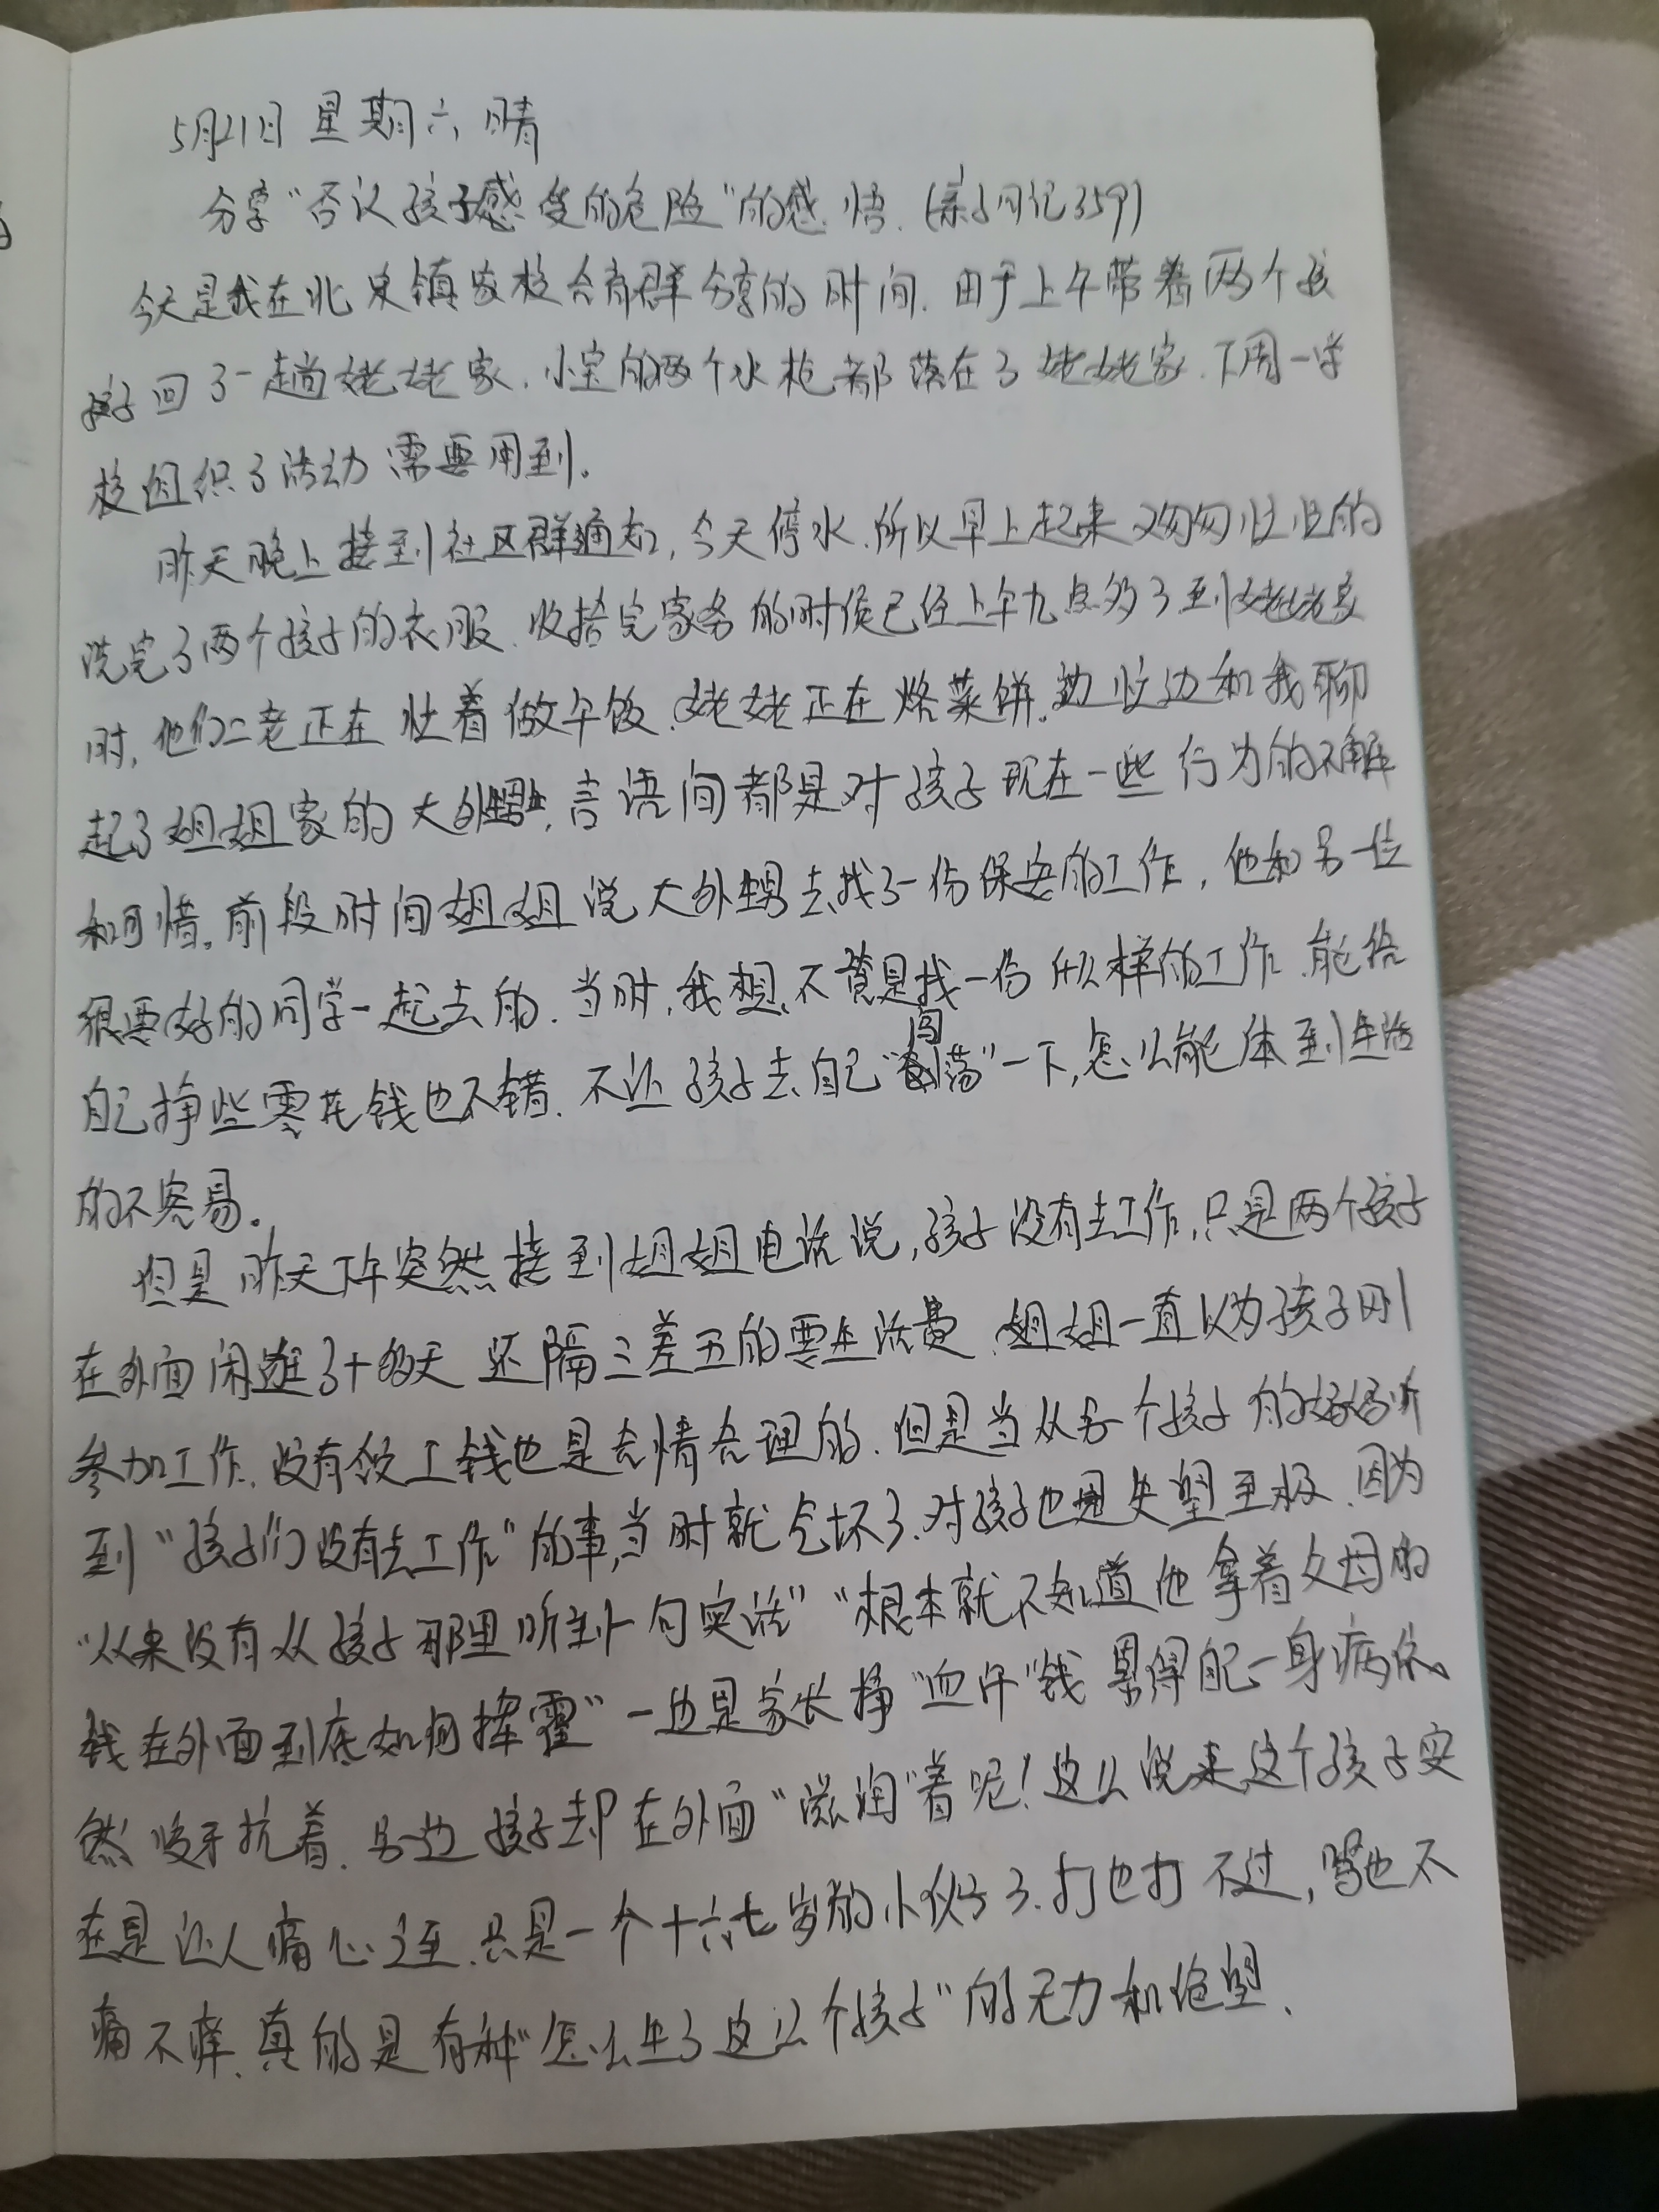 5月21日 星期六 晴
分享“否认孩子感受的危险”的感悟.(亲子日记359)
今天是我在北宋镇家校合育群分享的时间.由于上午带着两个孩
孩子回了一趟姥姥家.小宝的两个水枪都落在了姥姥家.下周一学
校组织了活动需要用到。
昨天晚上接到社区群通知,今天停水.所以早上起来又匆匆忙忙的
洗完了两个孩子的衣服.收拾完家务的时候已经上午九点多了到姥姥家
时,他们二老正在忙着做午饭.姥姥正在烙菜饼.边忙边和我聊
起了姐姐家的大外甥,言语间都是对孩子现在一些行为的不解
和可惜。前段时间姐姐说大外甥去找了一份保安的工作,他和另一位
很要好的同学一起去的.当时,我想,不管是找一份什么样的工作.能给
自己挣些零花钱也不错.不让孩子去自己“闯荡”一下,怎么能体到生活
的不容易。
但是昨天下午突然接到姐姐电话说,孩子没有去工作,只是两个孩子
在外面闲逛了十多天 还隔三差五的要生活费.姐姐一直以为孩子刚
参加工作.没有发工钱也是合情合理的.但是当从另一个孩子的妈妈听
到“孩子们没有去工作”的事,当时就气坏了.对孩子也是失望至极.因为
“从来没有从孩子那里听到一句实话”“根本就不知道他拿着父母的
钱在外面到底如何挥霍”一边是家长挣“血汗”钱 累得自己一身病依
然咬牙抗着.另一边孩子却在外面“滋润”着呢!这么说来,这个孩子实
在是让人痛心之至.只是一个十六七岁的小伙子了.打也打不过,骂也不
痛不痒.真的是有种“怎么生了这么个孩子”的无力和绝望.